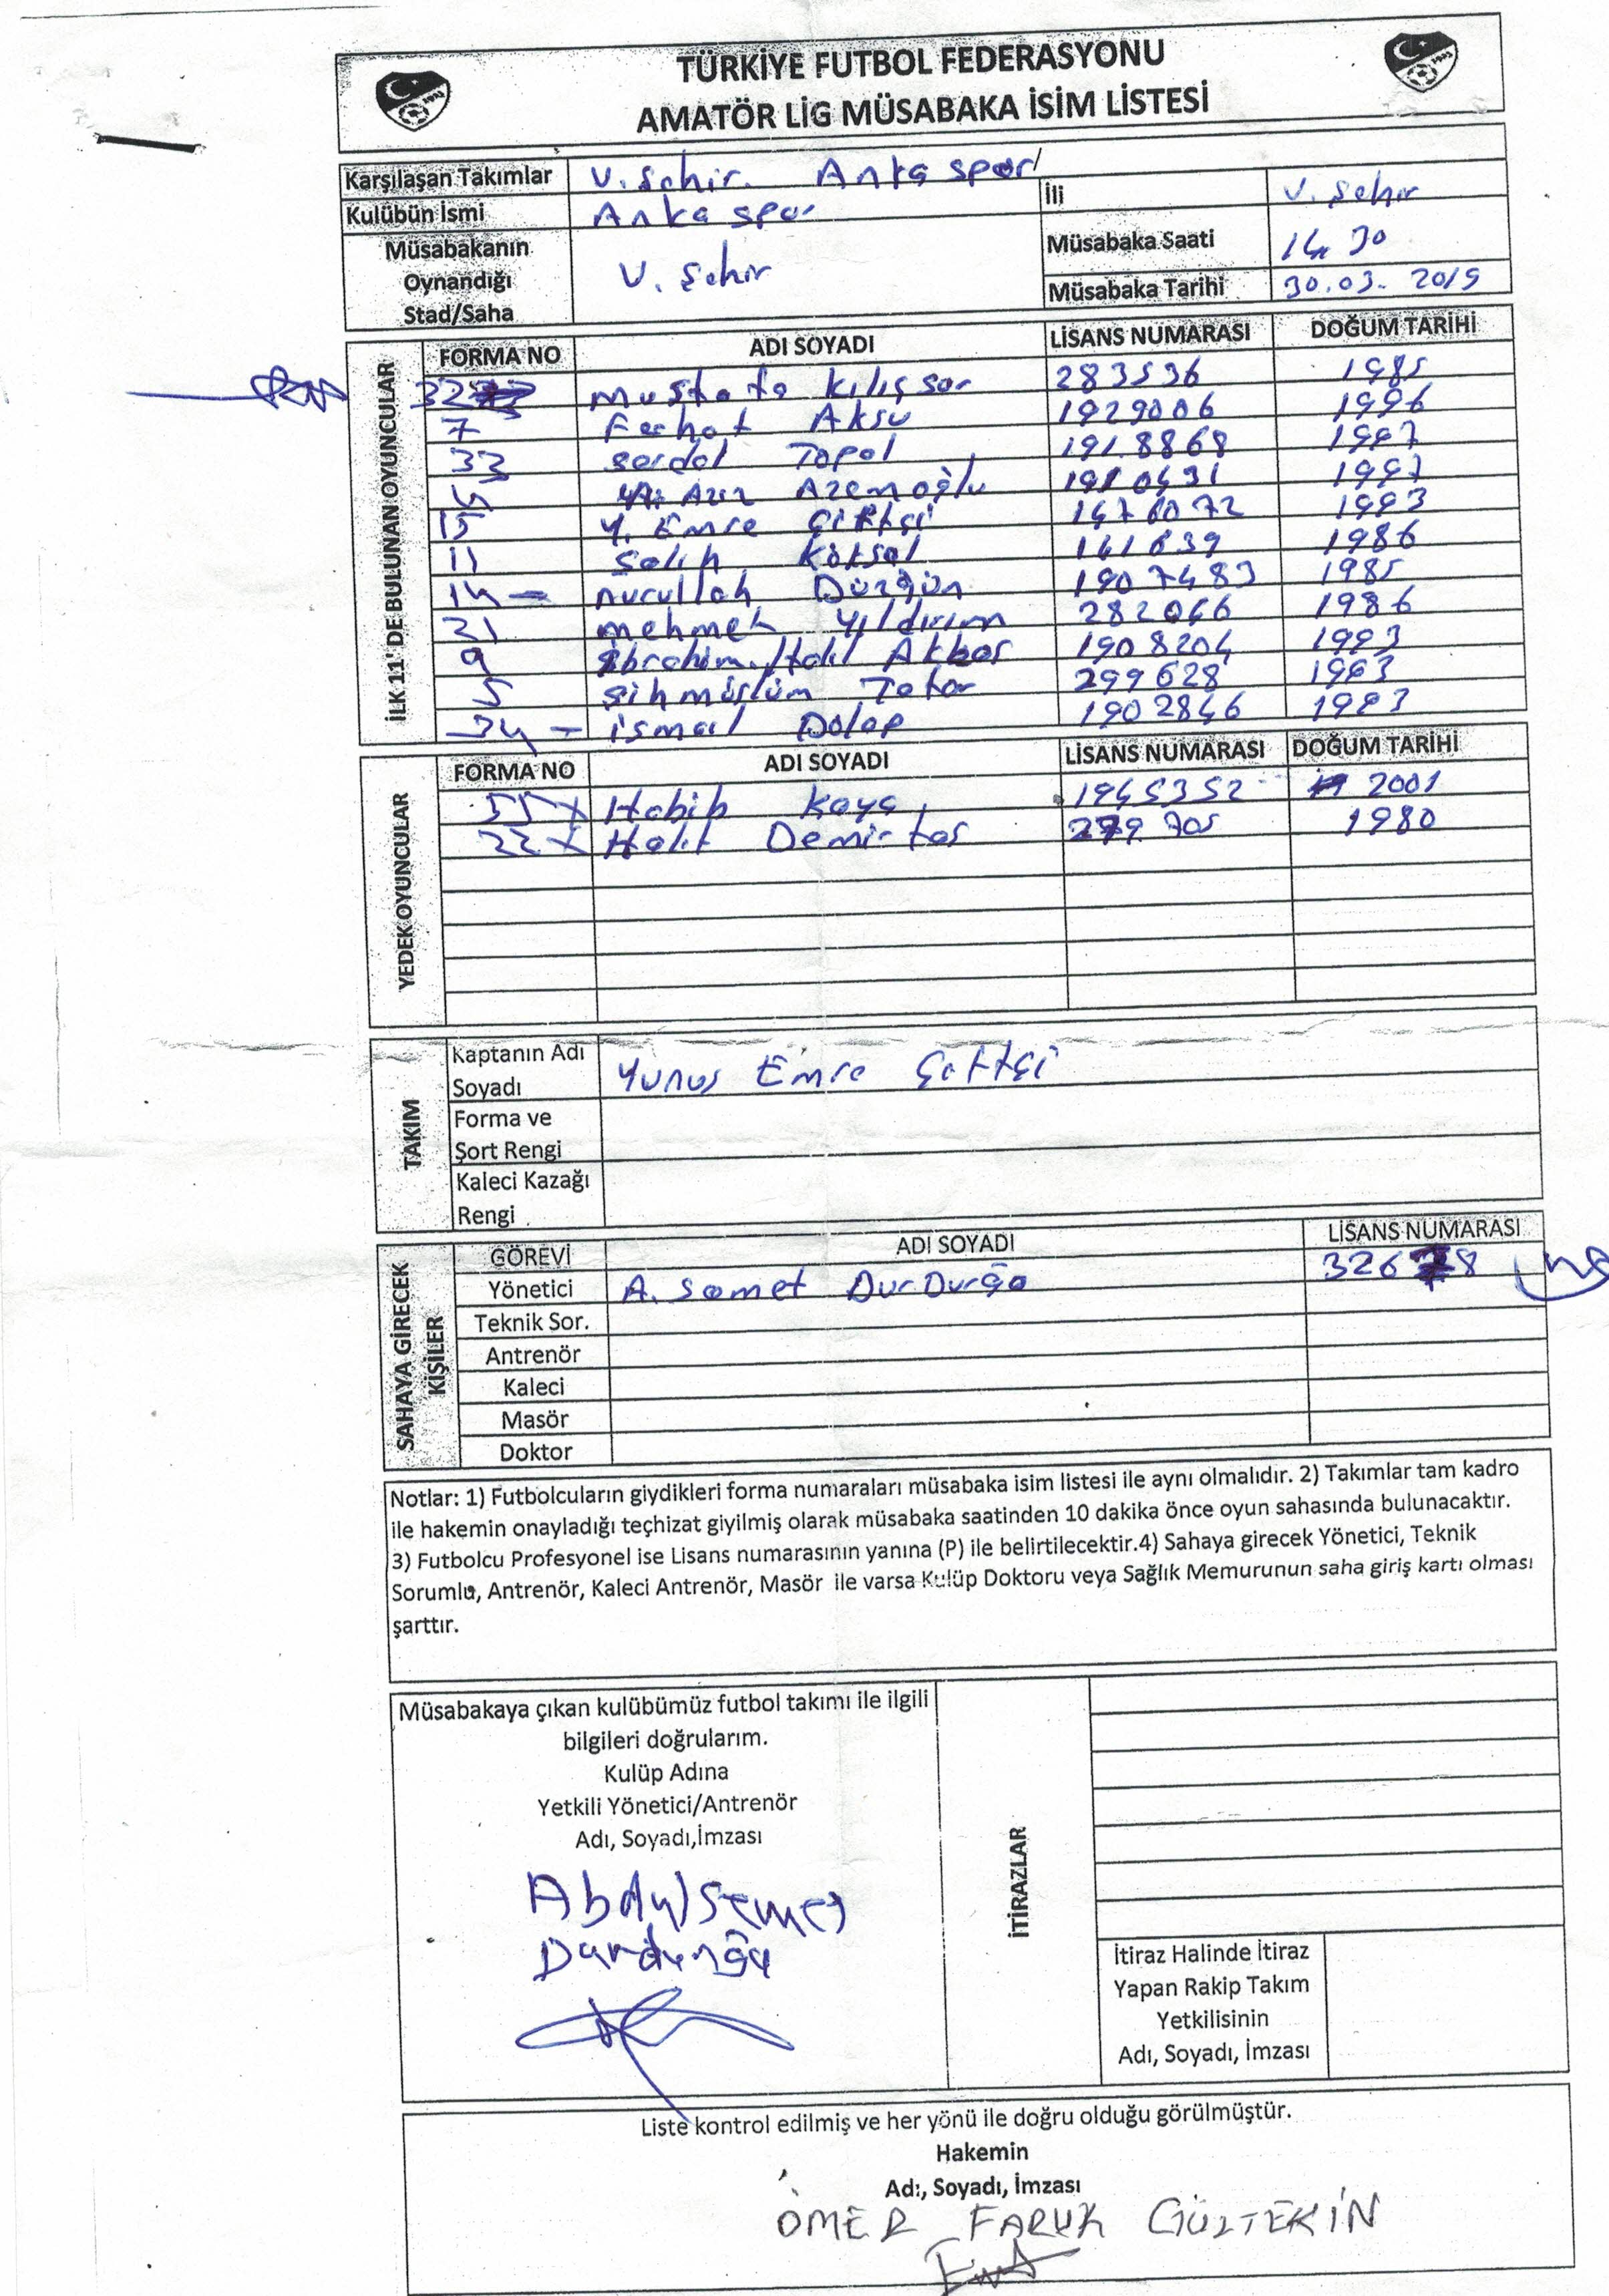 TÜRKİYE FUTBOL FEDERASYONU
AMATÖR LİG MÜSABAKA İSİM LİSTESİ
Karşılaşan Takımlar V. Şehir. Anka spor
Kulübün İsmi Anka spor İli V. Şehir
Müsabakanın Oynandığı Stad/Saha V. Şehir Müsabaka Saati 14 30
Müsabaka Tarihi 30.03.2019
İLK 11' DE BULUNAN OYUNCULAR
FORMA NO ADI SOYADI LİSANS NUMARASI DOĞUM TARİHİ
Mustafa Kılıçsor 283536 1985
7 Ferhat Aksu 1929006 1996
33 Serdal Topal 1918868 1997
4 Aziz Azemoğlu 1997
15 Y. Emre Çiftçi 1993
11 Salih Köksal 1986
14 - Nurullah Düzgün 1907483 1985
21 Mehmet Yıldırım 282066 1986
9 İbrahim Halil Akbaş 1908204 1993
5 Şihmüslüm Tatar 299628
34 - İsmail Dolap 1902846 1993
YEDEK OYUNCULAR
FORMA NO ADI SOYADI LİSANS NUMARASI DOĞUM TARİHİ
55 X Habib Kaya 1945352 2001
22 X Halit Demirtaş 279705 1980
TAKIM
Kaptanın Adı Soyadı Yunus Emre Çiftçi
Forma ve Şort Rengi
Kaleci Kazağı Rengi
SAHAYA GİRECEK KİŞİLER
GÖREVİ ADI SOYADI LİSANS NUMARASI
Yönetici A. Samet DurDurğa
Teknik Sor.
Antrenör
Kaleci
Masör
Doktor
Notlar: 1) Futbolcuların giydikleri forma numaraları müsabaka isim listesi ile aynı olmalıdır. 2) Takımlar tam kadro
ile hakemin onayladığı teçhizat giyilmiş olarak müsabaka saatinden 10 dakika önce oyun sahasında bulunacaktır.
3) Futbolcu Profesyonel ise Lisans numarasının yanına (P) ile belirtilecektir.4) Sahaya girecek Yönetici, Teknik
Sorumlu, Antrenör, Kaleci Antrenör, Masör ile varsa Kulüp Doktoru veya Sağlık Memurunun saha giriş kartı olması
şarttır.
Müsabakaya çıkan kulübümüz futbol takımı ile ilgili
bilgileri doğrularım.
Kulüp Adına
Yetkili Yönetici/Antrenör
Adı, Soyadı,İmzası
Abdulsemet
Durdurğa
İTİRAZLAR
İtiraz Halinde İtiraz
Yapan Rakip Takım
Yetkilisinin
Adı, Soyadı, İmzası
Liste kontrol edilmiş ve her yönü ile doğru olduğu görülmüştür.
Hakemin
Adı, Soyadı, İmzası
ÖMER FARUK GÜLTEKİN